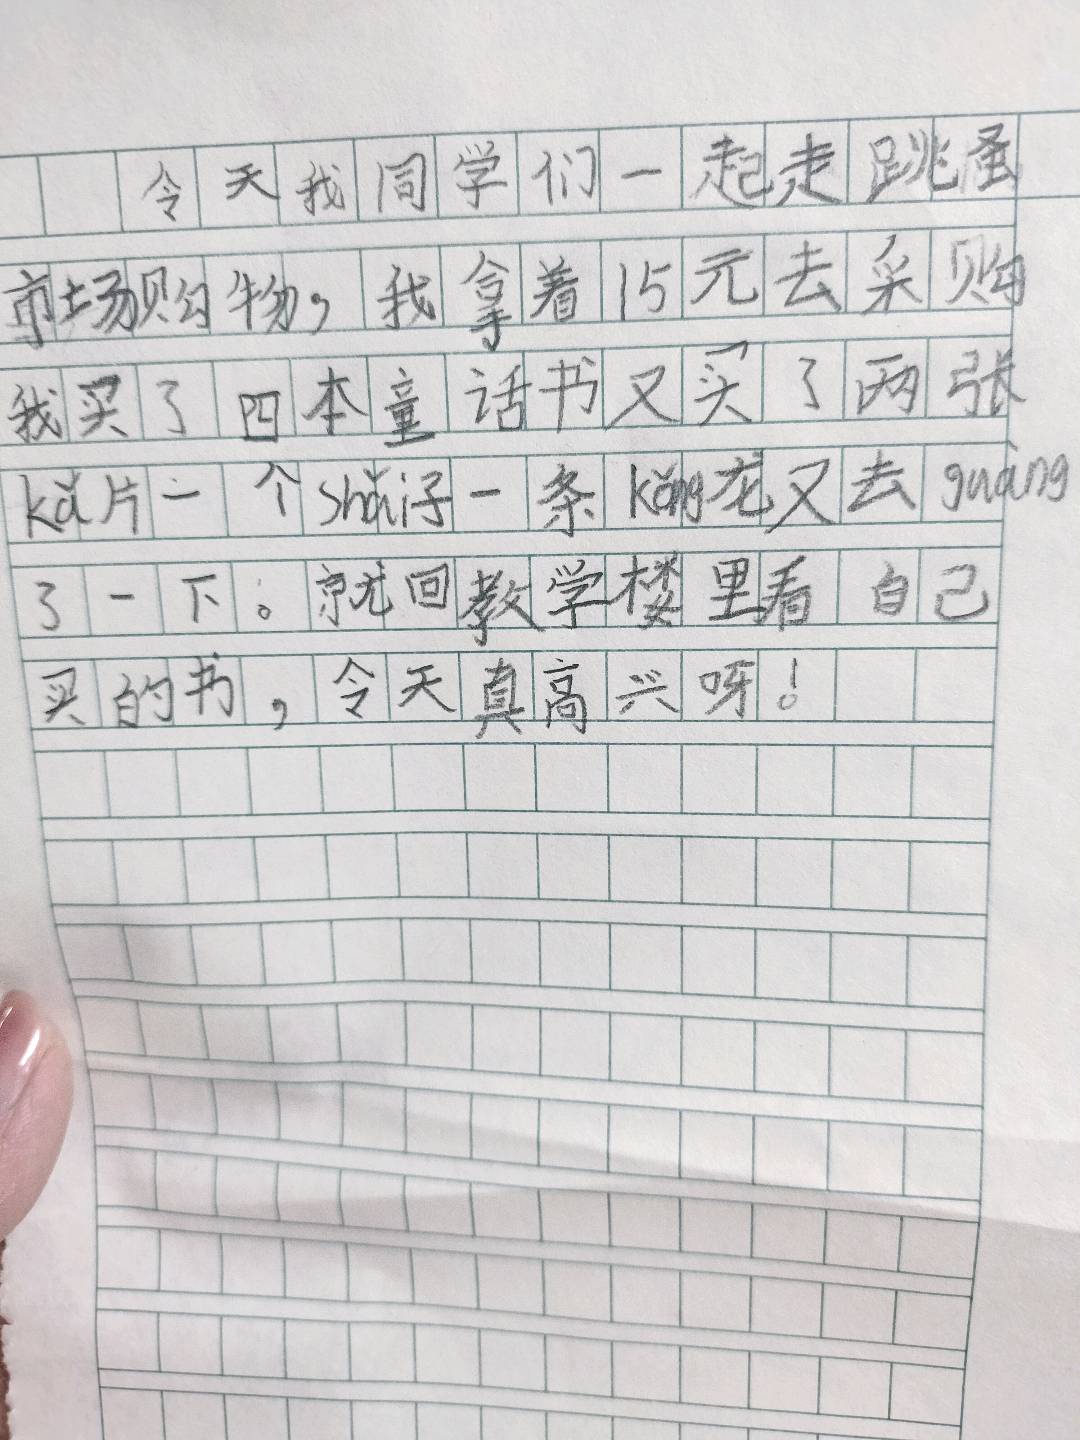 令天我同学们一起走跳蚤
市场购物，我拿着15元去采购
我买了四本童话书又买了两张
kǎ片一个shǎi子一条kǒng龙又去guàng
了一下。就回教学楼里看自己
买的书，令天真高兴呀！